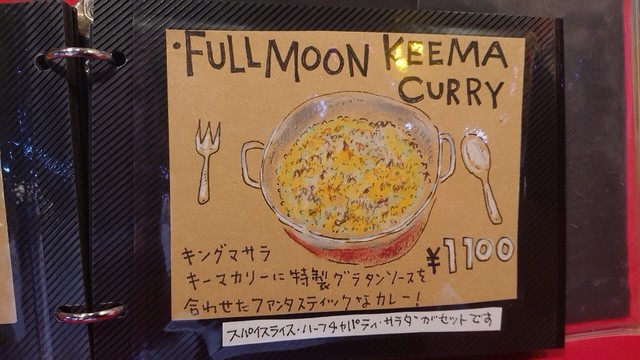 ・FULLMOON KEEMA
CURRY
キングマサラ
キーマカリーに特製グラタンソースを
合わせたファンタスティックなカレー!
¥1100
スパイスライス・ハーフチャパティ・サラダがセットです